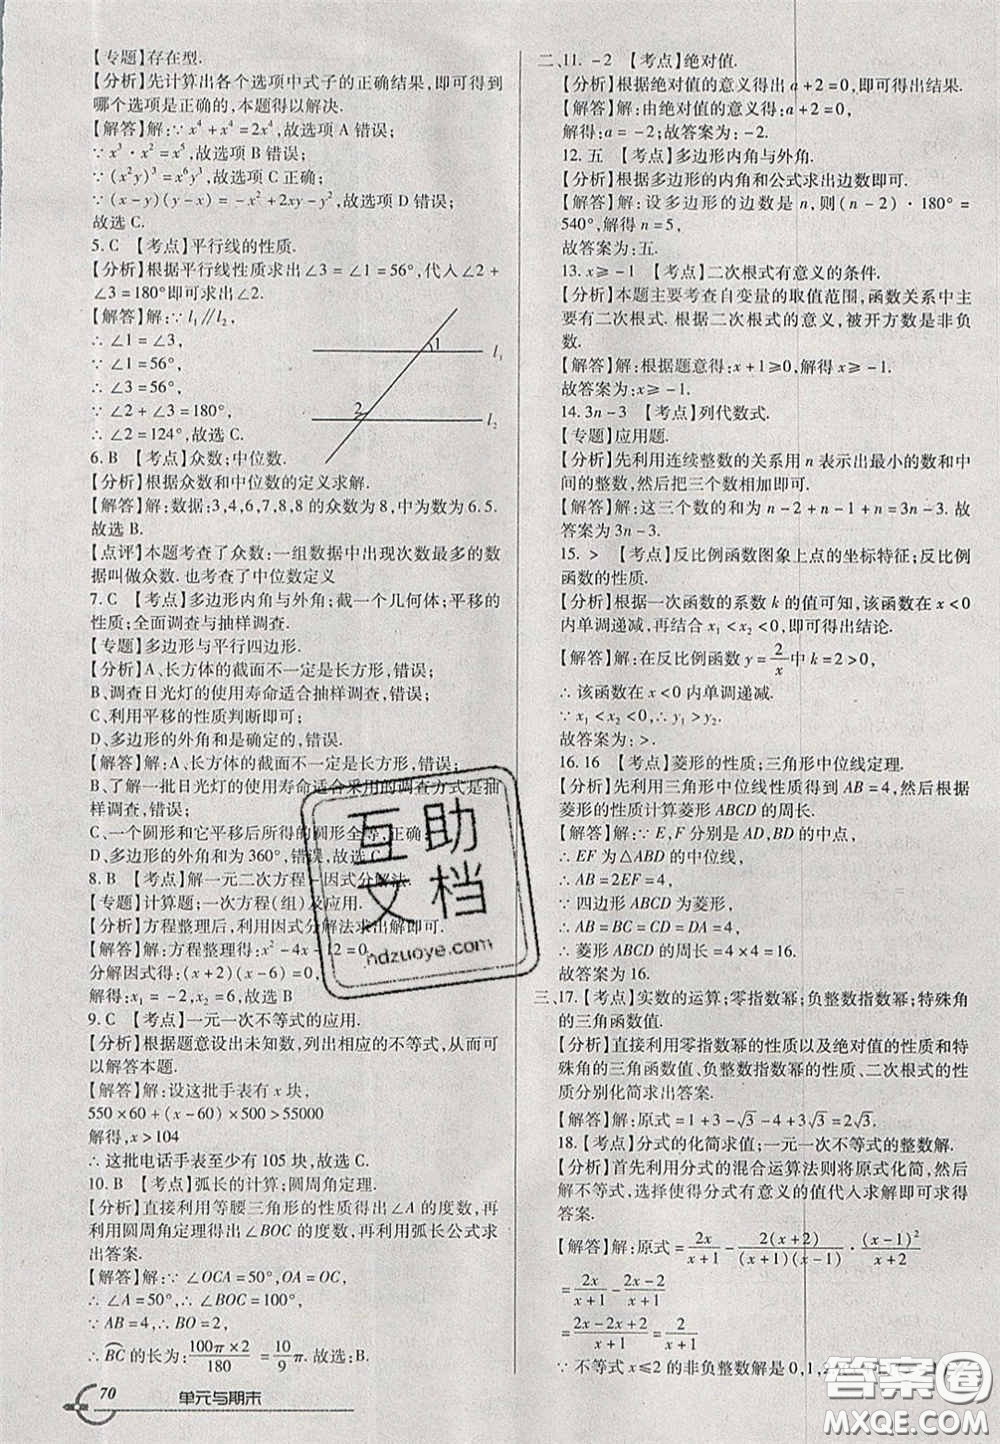 【专题】存在型.
【分析】先计算出各个选项中式子的正确结果,即可得到
哪个选项是正确的,本题得以解决.
【解答】解:∵x⁴+x⁴=2x⁴,故选项 A 错误;
∵x³·x²=x⁵,故选项 B 错误;
∵(x²y)³=x⁶y³,故选项 C 正确;
∵(x-y)(y-x)=-x²+2xy-y²,故选项 D 错误;
故选 C.
5. C 【考点】平行线的性质.
【分析】根据平行线性质求出∠3=∠1=56°,代入∠2+
∠3=180°即可求出∠2.
【解答】解:∵l₁∥l₂,
∴∠1=∠3,
∵∠1=56°,
∴∠3=56°,
∵∠2+∠3=180°,
∴∠2=124°,故选 C.
1
l₁
2
l₂
6. B 【考点】众数;中位数.
【分析】根据众数和中位数的定义求解.
【解答】解:数据:3,4,6,7,8,8 的众数为 8,中为数为 6.5.
故选 B.
【点评】本题考查了众数:一组数据中出现次数最多的数
据叫做众数.也考查了中位数定义
7. C 【考点】多边形内角与外角;截一个几何体;平移的
性质;全面调查与抽样调查.
【专题】多边形与平行四边形.
【分析】A、长方体的截面不一定是长方形,错误;
B、调查日光灯的使用寿命适合抽样调查,错误;
C、利用平移的性质判断即可;
D、多边形的外角和是确定的,错误.
【解答】解:A、长方体的截面不一定是长方形,错误;
B、了解一批日光灯的使用寿命适合采用的调查方式是抽
样调查,错误;
C、一个圆形和它平移后所得的圆形全等,正确;
D、多边形的外角和为 360°,错误,故选 C.
8. B 【考点】解一元二次方程-因式分解法.
【专题】计算题;一次方程(组)及应用.
【分析】方程整理后,利用因式分解法求出解即可.
【解答】解:方程整理得:x²-4x-12=0,
分解因式得:(x+2)(x-6)=0,
解得:x₁=-2,x₂=6,故选 B
9. C 【考点】一元一次不等式的应用.
【分析】根据题意设出未知数,列出相应的不等式,从而可
以解答本题.
【解答】解:设这批手表有 x 块,
550×60+(x-60)×500>55000
解得,x>104
∴这批电话手表至少有 105 块,故选 C.
10. B 【考点】弧长的计算;圆周角定理.
【分析】直接利用等腰三角形的性质得出∠A 的度数,再
利用圆周角定理得出∠BOC 的度数,再利用弧长公式求
出答案.
【解答】解:∵∠OCA=50°,OA=OC,
∴∠A=50°,∴∠BOC=100°,
∵AB=4,∴BO=2,
∴B͡C的长为:100π×2/180=10/9π.故选:B.
70 单元与期末
二、11. -2 【考点】绝对值.
【分析】根据绝对值的意义得出 a+2=0,即可得出结果.
【解答】解:由绝对值的意义得:a+2=0,
解得:a=-2;故答案为:-2.
12. 五 【考点】多边形内角与外角.
【分析】根据多边形的内角和公式求出边数即可.
【解答】解:设多边形的边数是 n,则(n-2)·180°=
540°,解得 n=5,
故答案为:五.
13. x≥-1 【考点】二次根式有意义的条件.
【分析】本题主要考查自变量的取值范围,函数关系中主
要有二次根式.根据二次根式的意义,被开方数是非负
数.
【解答】解:根据题意得:x+1≥0,解得 x≥-1.
故答案为:x≥-1.
14. 3n-3 【考点】列代数式.
【专题】应用题.
【分析】先利用连续整数的关系用 n 表示出最小的数和中
间的整数,然后把三个数相加即可.
【解答】解:这三个数的和为 n-2+n-1+n=3n-3. 故
答案为 3n-3.
15. > 【考点】反比例函数图象上点的坐标特征;反比例
函数的性质.
【分析】根据一次函数的系数 k 的值可知,该函数在 x<0
内单调递减,再结合 x₁<x₂<0,即可得出结论.
【解答】解:在反比例函数 y=2/x中 k=2>0,
∴该函数在 x<0 内单调递减.
∵x₁<x₂<0,∴y₁>y₂.
故答案为:>.
16. 16 【考点】菱形的性质;三角形中位线定理.
【分析】先利用三角形中位线性质得到 AB=4,然后根据
菱形的性质计算菱形 ABCD 的周长.
【解答】解:∵E,F 分别是 AD,BD 的中点,
∴EF 为△ABD 的中位线,
∴AB=2EF=4,
∵四边形 ABCD 为菱形,
∴AB=BC=CD=DA=4,
∴菱形 ABCD 的周长=4×4=16.
故答案为 16.
三、17.【考点】实数的运算;零指数幂;负整数指数幂;特殊角
的三角函数值.
【分析】直接利用零指数幂的性质以及绝对值的性质和特
殊角的三角函数值、负整数指数幂的性质、二次根式的性
质分别化简求出答案.
【解答】解:原式=1+3-√3-4+3√3=2√3.
18.【考点】分式的化简求值;一元一次不等式的整数解.
【分析】首先利用分式的混合运算法则将原式化简,然后
解不等式,选择使得分式有意义的值代入求解即可求得
答案.
【解答】解:原式=2x/(x+1)-2(x+2)/(x+1)(x-1)·(x-1)²/(x+2)
=2x/(x+1)-(2x-2)/(x+1)
=(2x-2x+2)/(x+1)=2/(x+1)
∵不等式 x≤2 的非负整数解是 0,1,2
互助文档
hdzuoye.com
答案圈
MXQE.COM